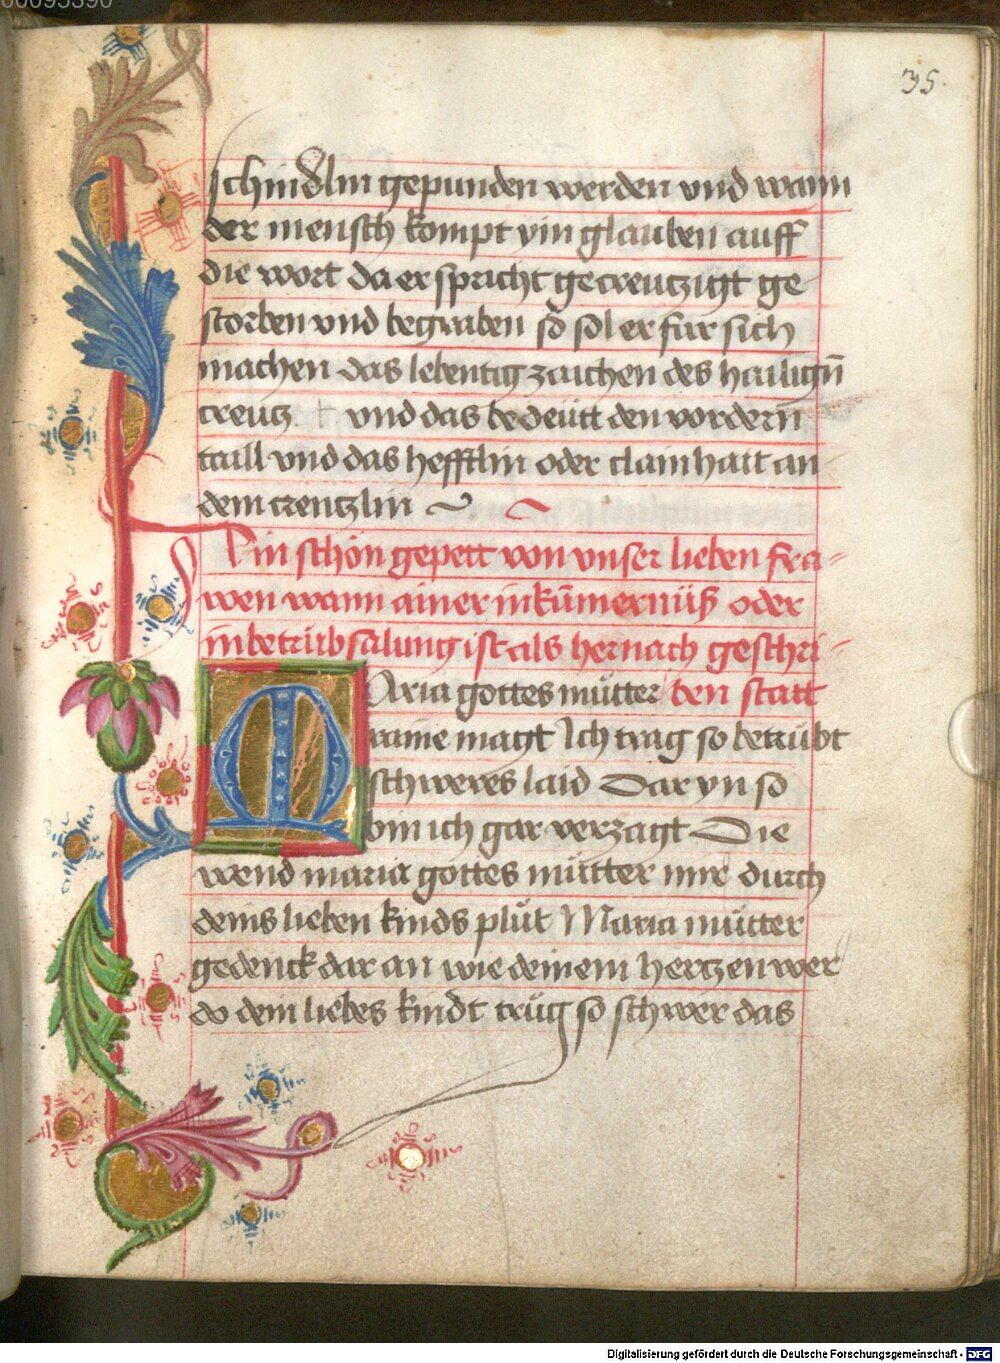 00095390
35.
schindlin gepunden werden vnd wann
der mensch kompt yin glauben auff
die wort da er spricht gecreutzigt ge
storben vnd begraben so sol er fur sich
machen das lebentig zaichen des hailigñ
creutz + vnd das bedeütt den vordern
taill vnd das hefftlin oder clainhatt an
dem creutzlin
Ein schön gepett von vnser lieben fra-
wen wann ainer in kümernüß oder
in betrübsalung ist als hernach geschri-
Maria gottes mütter ben statt
raine magt Ich trag so betrübt
schweres laid Dar yn so
bin ich gar verzagt Die
wend maria gottes mütter mir durch
deins lieben kinds plüt Maria mütter
gedenck dar an wie deinem hertzen wer
do dein liebes kindt trüg so schwer das
Digitalisierung gefördert durch die Deutsche Forschungsgemeinschaft - DFG